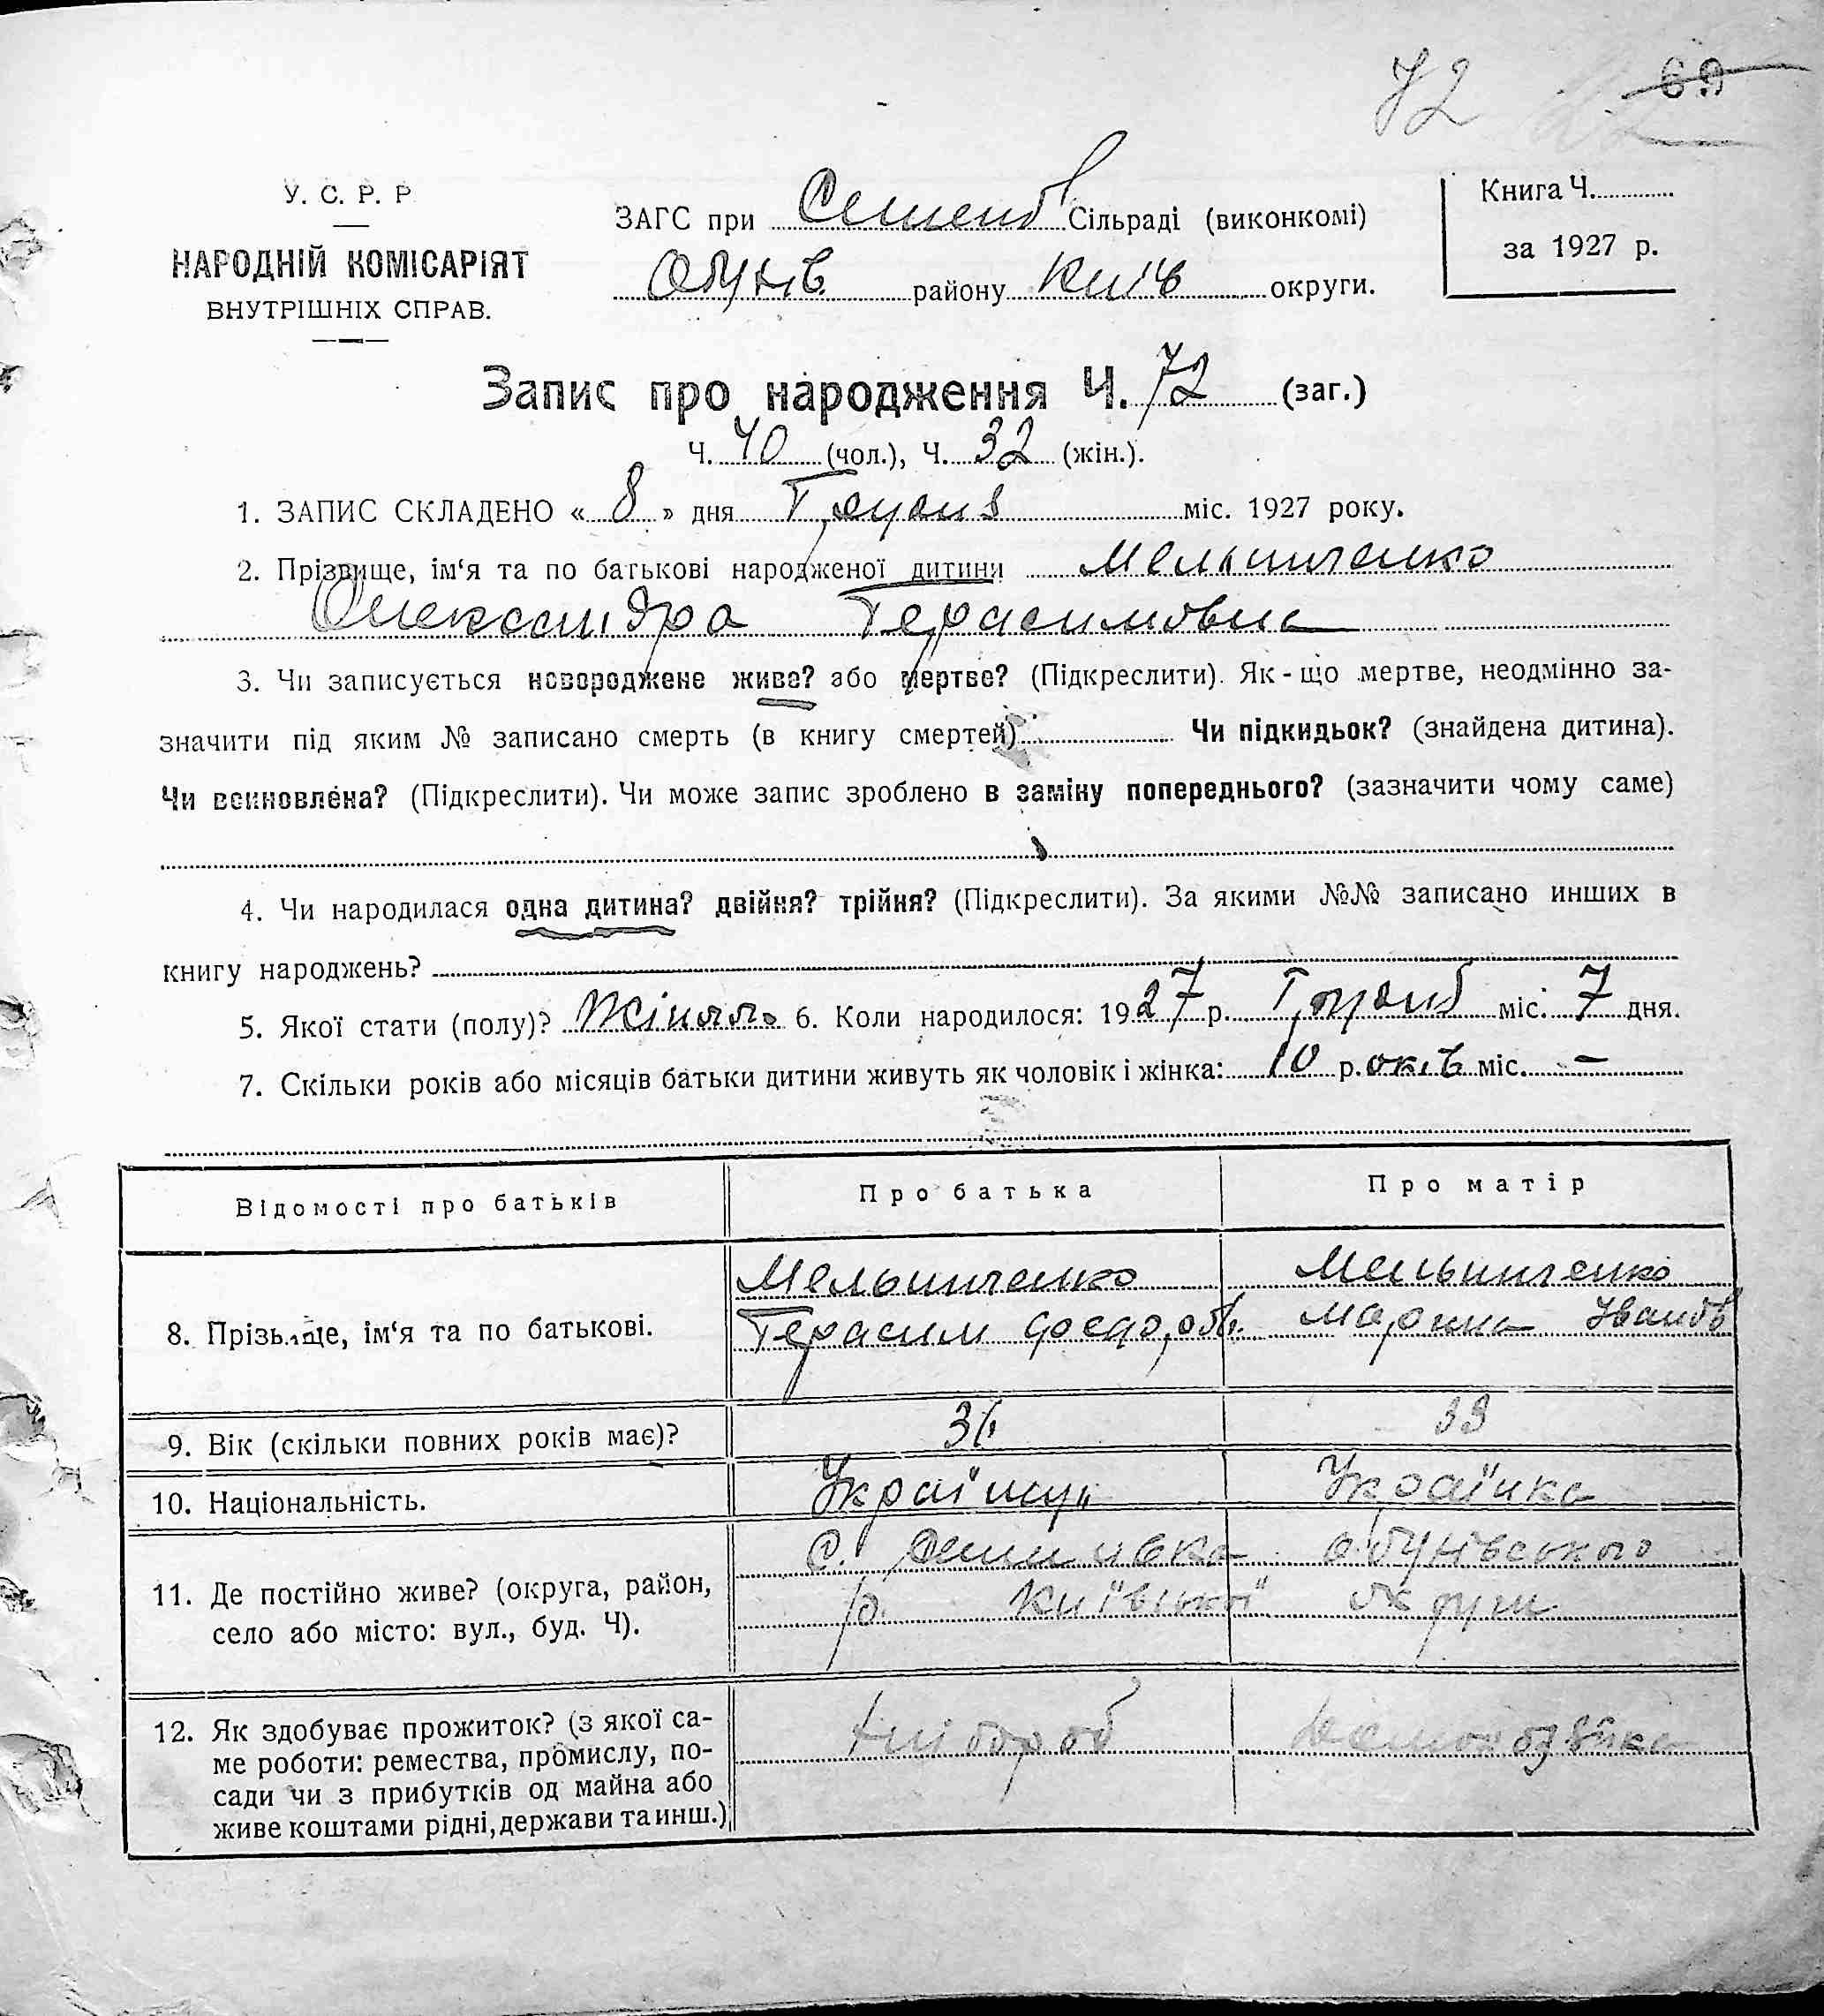 72 69
У. С. Р. Р
НАРОДНІЙ КОМІСАРІЯТ
ВНУТРІШНІХ СПРАВ.
ЗАГС при Семенів Сільраді (виконкомі)
Обухів. району Київ округи.
Книга Ч.
за 1927 р.
Запис про народження Ч. 72 (заг.)
Ч. 40 (чол.), Ч. 32 (жін.).
1. ЗАПИС СКЛАДЕНО « 8 » дня Грудня міс. 1927 року.
2. Прізвище, ім‘я та по батькові народженої дитини Мельниченко
Олександра Герасимовна
3. Чи записується новороджене живе? або мертве? (Підкреслити). Як-що мертве, неодмінно за-
значити під яким № записано смерть (в книгу смертей) Чи підкидьок? (знайдена дитина).
Чи всиновлена? (Підкреслити). Чи може запис зроблено в заміну попереднього? (зазначити чому саме)
4. Чи народилася одна дитина? двійня? трійня? (Підкреслити). За якими №№ записано инших в
книгу народжень?
5. Якої стати (полу)? Жіноча 6. Коли народилося: 1927 р. Грудня міс. 7 дня.
7. Скільки років або місяців батьки дитини живуть як чоловік і жінка: 10 р.оків міс. –
Відомості про батьків Про батька Про матір
8. Прізвище, ім‘я та по батькові. Мельниченко Мельниченко
Герасим Федоров. Марина Іванов
9. Вік (скільки повних років має)? 36 33
10. Національність. Українць Українка
11. Де постійно живе? (округа, район,
село або місто: вул., буд. Ч).
с. Обухівського
р. Київської округи
12. Як здобуває прожиток? (з якої са-
ме роботи: ремества, промислу, по-
сади чи з прибутків од майна або
живе коштами рідні, держави та инш.)
Хлібороб Домохозяйка